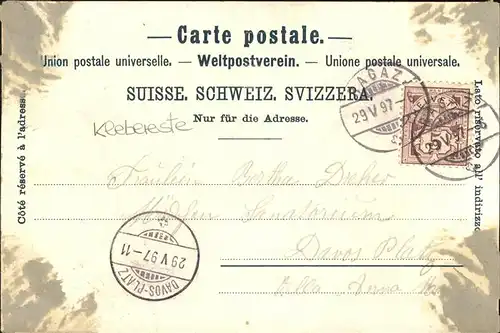 — Carte postale. —
Union postale universelle. — Weltpostverein. — Unione postale universale.
SUISSE. SCHWEIZ. SVIZZERA.
Nur für die Adresse.
Klebereste
Côté réservé à l'adresse.
Lato riservato all' indirizzo
AGAZ
29 V 97
HELVETIA
5
Fräulein Bertha Dreher
Sanatorium
Davos Platz
Villa Anna
DAVOS-PLATZ
29 V 97-11